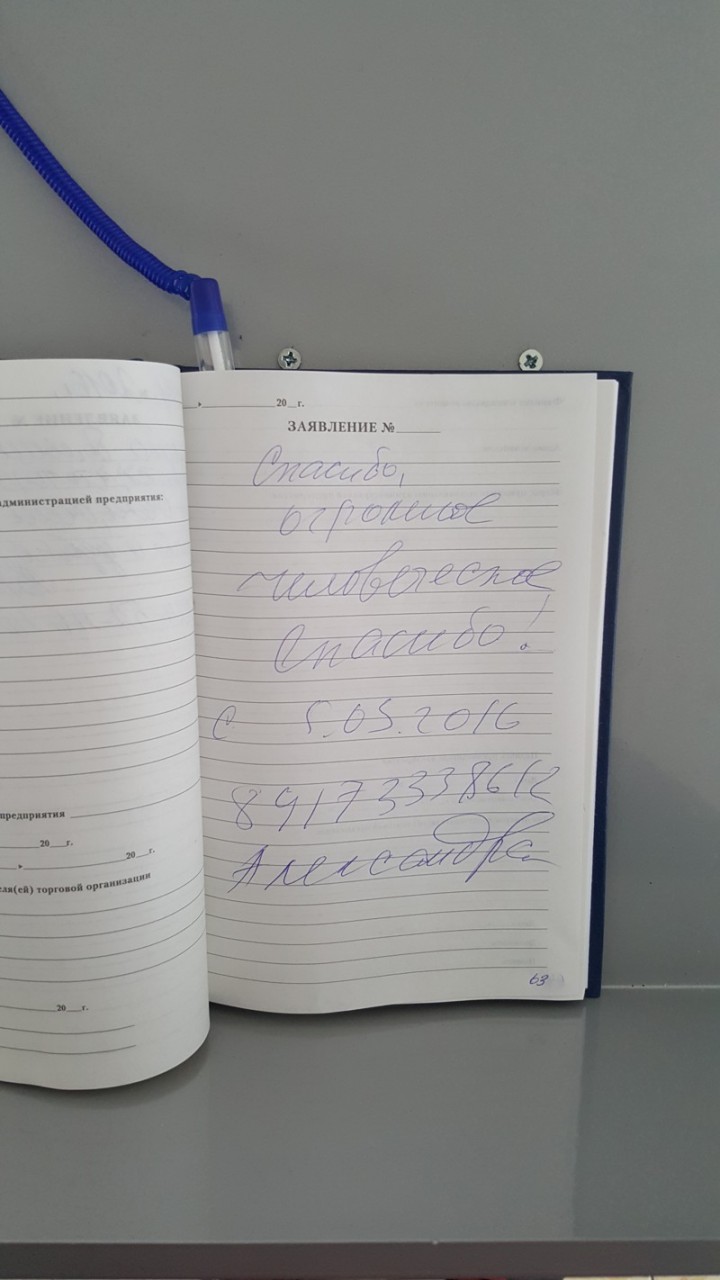 администрацией предприятия:
предприятия
20 г.
20 г.
еля(ей) торговой организации
20 г.
20 г.
ЗАЯВЛЕНИЕ №
Спасибо,
огромное
человеческое
спасибо!
с 5.05.2016
89173338612
Александра
63